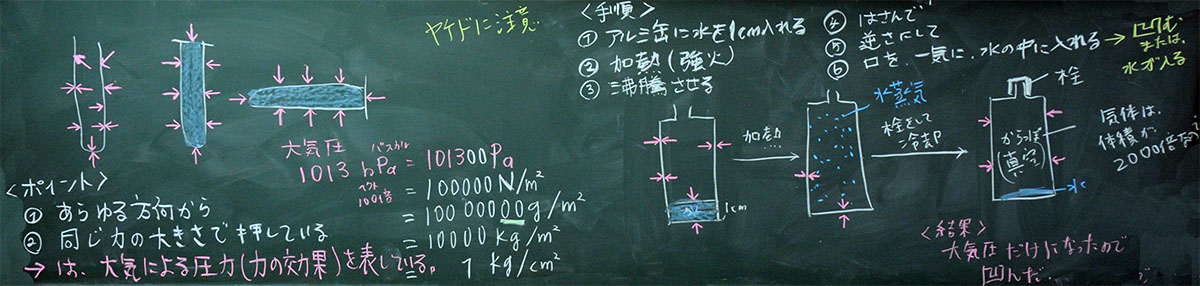 ヤケドに注意
大気圧
パスカル
1013 hPa = 101300Pa
ヘクト
100倍
= 100000 N/m²
= 10000000g/m²
= 10000 kg/m²
= 1 kg/cm²
<ポイント>
① あらゆる方向から
② 同じ力の大きさで押している
→ は、大気による圧力(力の効果)を表している。
<手順>
① アルミ缶に水を1cm入れる
② 加熱(強火)
③ 沸騰させる
④ はさんで
⑤ 逆さにして
⑥ 口を、一気に、水の中に入れる → 凹む
または、
水が入る
水
1cm
加熱
水蒸気
栓をして
冷却
栓
からっぽ
(真空)
水
気体は、
体積が
2000倍
<結果>
大気圧だけになったので
凹んだ。